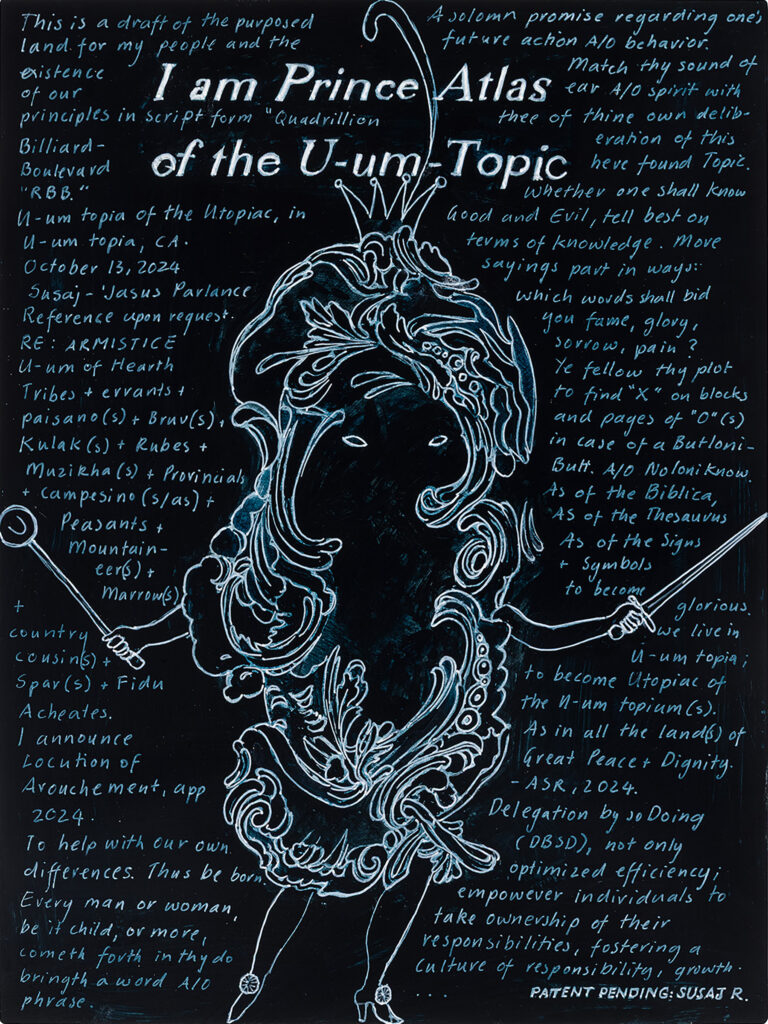 I am Prince Atlas
of the U-um-Topic
This is a draft of the purposed
land for my people and the
existence
of our
principles in script form "Quadrillion
Billiard-
Boulevard
"RBB."
U-um topia of the Utopiac, in
U-um topia, CA.
October 13, 2024
Susaj-'Jasus Parlance
Reference upon request.
RE: ARMISTICE
U-um of Hearth
Tribes + errants +
paisano(s) + Bruv(s) +
Kulak(s) + Rubes +
Muzikha(s) + Provincials
+ campesino(s/as) +
Peasants +
Mountain-
eer(s) +
Marrow(s)
+
country
cousin(s) +
Spar(s) + Fidu
Acheates.
I announce
Locution of
Avouchement, app
2024.
To help with our own
differences. Thus be born
Every man or woman,
be it child, or more,
cometh forth in thy do
bringth a word A/O
phrase.
A solomn promise regarding one's
future action A/O behavior.
Match thy sound of
ear A/O spirit with
thee of thine own delib-
eration of this
here found Topic.
Whether one shall know
Good and Evil, tell best on
terms of knowledge. Move
sayings part in ways::
which words shall bid
you fame, glory,
sorrow, pain?
Ye fellow thy plot
to find "X" on blocks
and pages of "O"(s)
in case of a Butloni-
Butt. A/O Noloniknow.
As of the Biblica,
As of the Thesaurus
As of the Signs
+ Symbols
to become
glorious.
we live in
U-um topia;
to become Utopiac of
the U-um topium(s).
As in all the land(s) of
Great Peace + Dignity.
- ASR, 2024.
Delegation by so Doing
(DBSD), not only
optimized efficiency;
empowever individuals to
take ownership of their
responsibilities, fostering a
culture of responsibility, growth.
...
PATTENT PENDING: SUSAJ R.